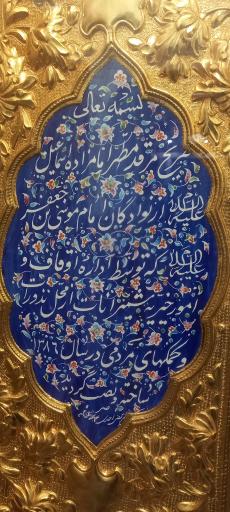 بسمه تعالی
ضریح مرقد مطهر امامزاده اسماعیل
علیه السلام از نوادگان امام موسی بن جعفر
علیه السلام که توسط اداره اوقاف و
امور خیریه شمیرانات از محل نذورات
و کمکهای مردمی در سال
ساخته و نصب گردیده